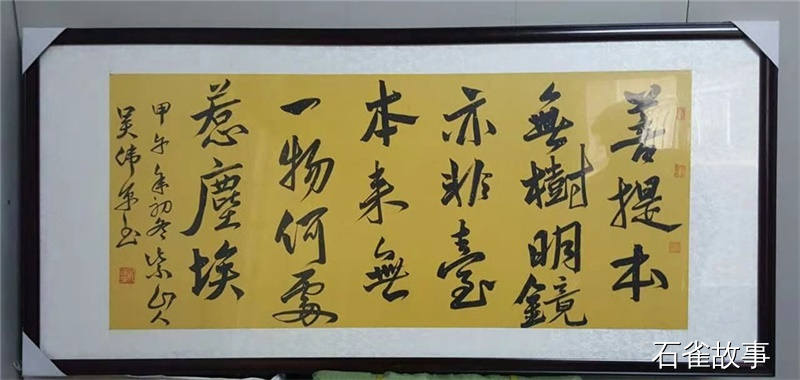 菩提本
無樹明鏡
亦非臺
本来無
一物何處
惹塵埃
甲午年初冬紫山人
吴伟书
石雀故事